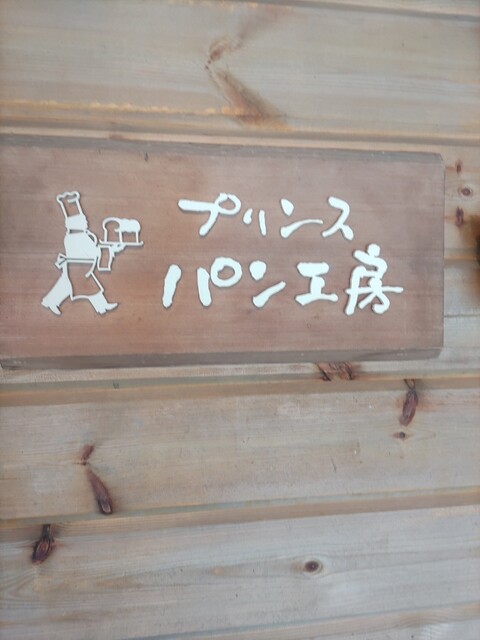 プリンス
パン工房